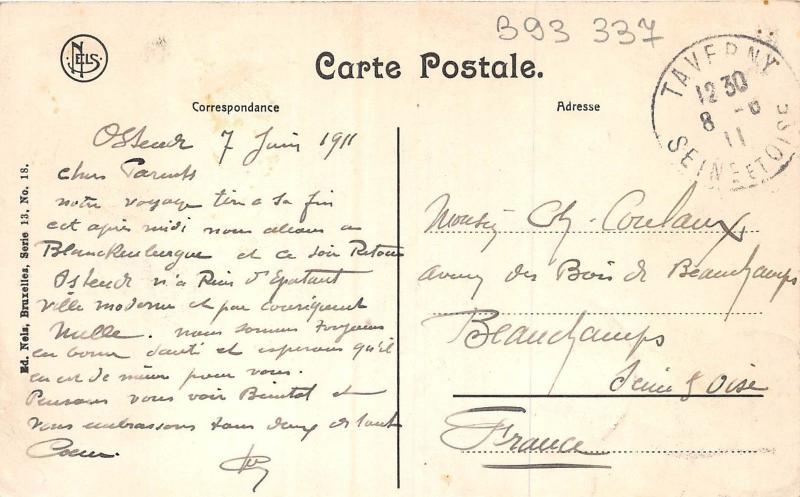 NELS
B93 337
Carte Postale.
Correspondance
Adresse
TAVERNY
12 30
8 -6
11
SEINE ET OISE
Ed. Nels, Bruxelles, Serie 13, No. 18.
Ostende 7 Juin 1911
Chers Parents
notre voyage tire a sa fin
cet après midi nous allons a
Blanckenbergue et ce soir Retour
Ostende n'a Rien d'Epatant
ville moderne et par conséquent
Nulle. nous sommes toujours
en bonne santé et esperons qu'il
en est de même pour vous.
Pensons vous voir Bientot et
vous embrassons tous deux de tout
Coeur.
Monsieur Ch. Coulaux
avenue des Bois de Beauchamps
Beauchamps
Seine & Oise
France